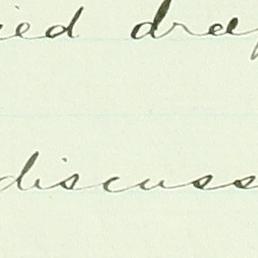 ied drap
discuss